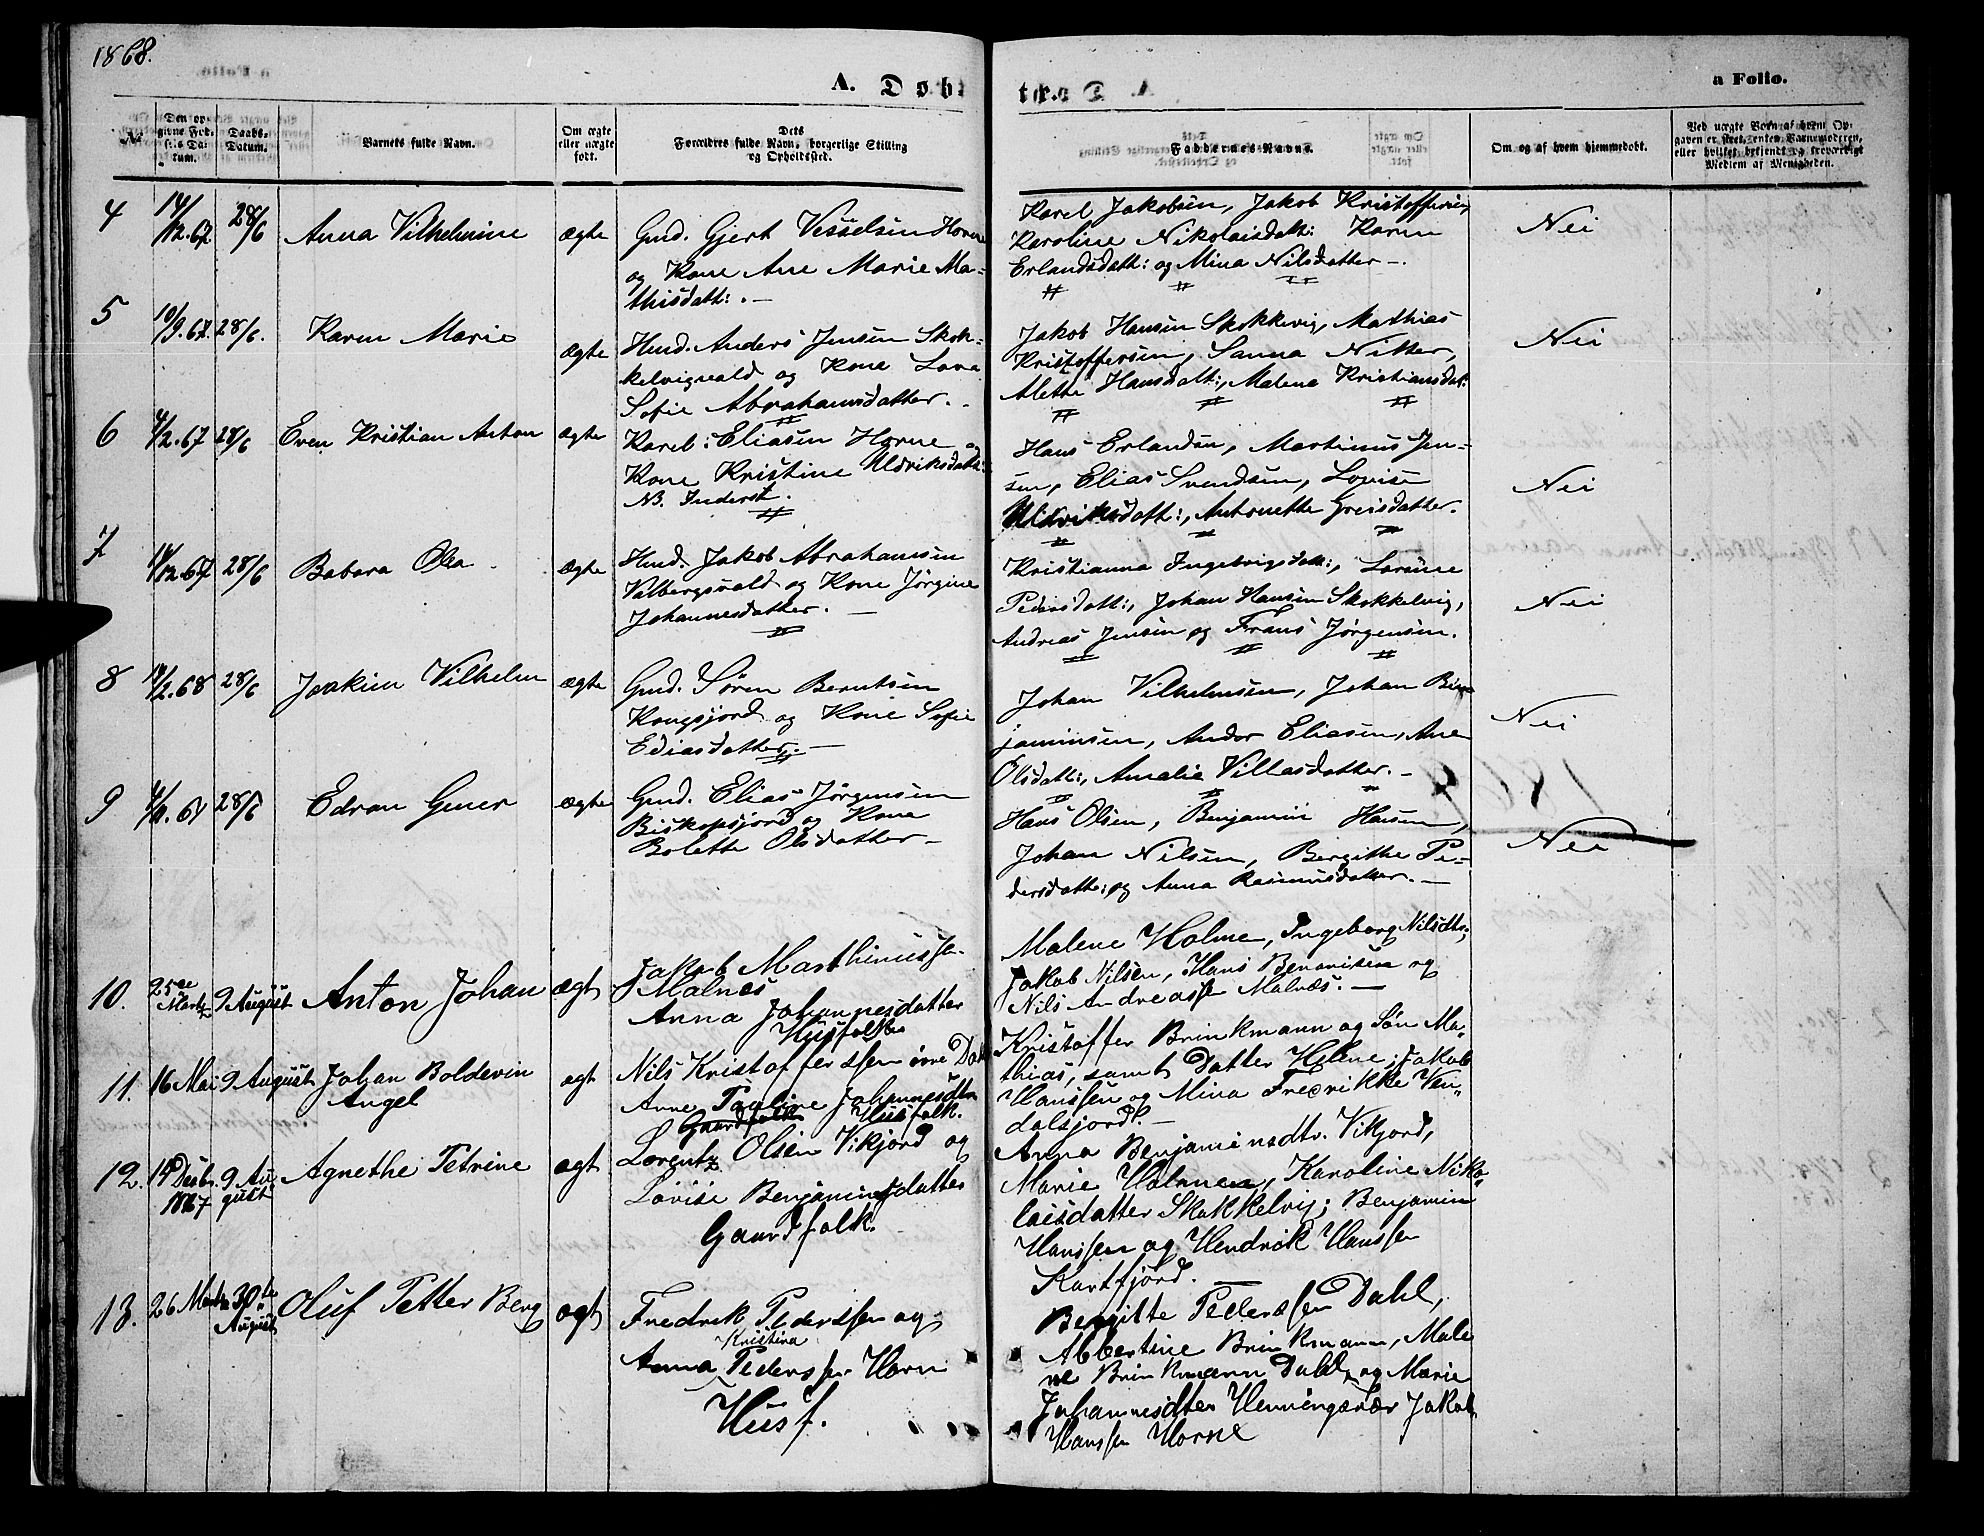 1868.
A. Døbte.
a Folio.
No.
Den opgivne Fødsels Datum.
Daabs-Datum.
Barnets fulde Navn.
Om ægte eller uægte født.
Forældres fulde Navn, Dets borgerlige Stilling og Opholdsted.
Faddernes Navne.
Om og af hvem hjemmedøbt.
4
14/12.67
28/6
Anna Vilhelmine
ægte
Gmd. Gjert Vesselsen Horne
og Kone Ane Marie Ma-
thisdatt:. —
Karel Jakobsen, Jakob Kristoffersen,
Karoline Nikolaisdatt: Karen
Erlandsdatt: og Mina Nilsdatter —.
Nei
5
10/9.67.
28/6.
Karen Marie
ægte
Hmd. Anders Jensen Skok-
kelvigvald og Kone Lova
Sofie Abrahamsdatter. -
Jakob Hansen Skokkevig, Mathias
Kristoffersen, Sanna Nitter,
Alette Hansdatt:, Malena Kristiansdat:
Nei
6
4/2.67
28/6
Even Kristian Anton
ægte
Karel: Eliasen Horne og
Kone Kristine Uldriksdatt:
NB. Inderst.
Hans Erlandsen, Martinus Jen-
sen, Elias Svendsen, Lovise
Uldriksdatt:, Antonette Greisdatter.
Nei
7
28/6
Babara Olea
ægte
Hmd. Jakob Abrahamsen
Valbergsvald og Kone Jørgine
Johannesdatter. —
Kristianna Ingebrigsdatt:, Lorsine
Pedersdatt:, Johan Hansen Skokkelvig,
Andreas Jensen og Frans Jørgensen.
Nei
8
28/6
Joakim Vilhelm
ægte
Gmd. Søren Berntsen
Kongsjord og Kone Sofie
Ediasdatter. —
Johan Vilhelmsen, Johan Ben-
jaminsen, Andor Eliasen, Ane
Olsdatt:, Amalie Villasdatter. -
Nei
9
28/6
Edvan Gener
ægte
Gmd. Elias Jørgensen
Biskopsjord og Kona
Bolette Olsdatter —
Hans Olsen, Benjamin Hansen,
Johan Nilsen, Bergithe Pe-
dersdatt: og Anna Rasmusdatter. —
Nei
10.
25de Marts
9 August
Anton Johan
ægt
Jakob Marthinussen
Malnæs
Anna Johannesdatter
Husfolk
Malene Holme, Ingeborg Nilsdtr,
Jakob Nilsen, Hans Benonisen og
Nils Andreassen Malnæs. —
11.
16 Mai
9 August
Johan Boldevin
Angel
ægt
Nils Kristoffersen øvre Dal
Anne Pauline Johannesdtr
Gaardfolk Husfolk.
Kristoffer Brinkmann og Søn Ma-
thias, samt Datter Helene; Jakob
Hanssen og Mina Fredrikke Ven-
dalsjord. —
12.
14 Desbr. 1867
9 August
Agnethe Petrine
ægt
Lorentz Olsen Vikjord og
Lovise Benjaminsdatter
Gaardfolk.
Anna Benjaminsdtr. Vikjord,
Marie Holmen, Karoline Niko-
laisdatter Skokkelvig; Benjamin
Hanssen og Hendrik Hanssen
Kartfjord. —
13.
26 Marts
30te August
Oluf Petter Berg
ægt
Fredrik Pederssen og
Kristina
Anna Pederssen Horn
Husf.
Bergitte Pederssen Dahl,
Abbertine Brinkmann, Male
ne Brinkmann Dahl, og Marie
Johannesdter Henningsvær Jakob
Hanssen Horne